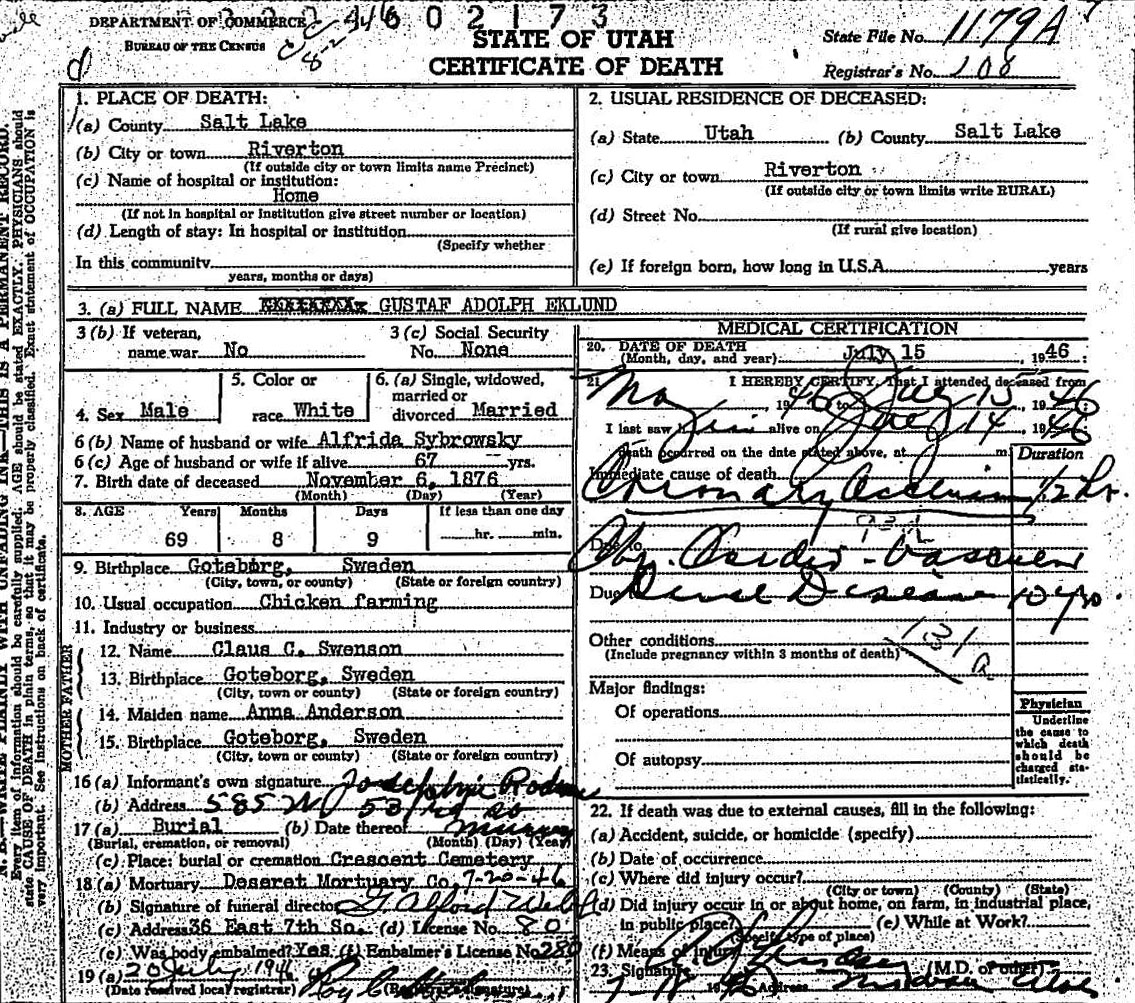 DEPARTMENT OF COMMERCE
BUREAU OF THE CENSUS
602173
STATE OF UTAH
CERTIFICATE OF DEATH
State File No. 1179A
Registrar's No. 108
1. PLACE OF DEATH:
(a) County Salt Lake
(b) City or town Riverton
(If outside city or town limits name Precinct)
(c) Name of hospital or institution:
Home
(If not in hospital or institution give street number or location)
(d) Length of stay: In hospital or institution
(Specify whether
In this community
years, months or days)
2. USUAL RESIDENCE OF DECEASED:
(a) State Utah (b) County Salt Lake
(c) City or town Riverton
(If outside city or town limits write RURAL)
(d) Street No.
(If rural give location)
(e) If foreign born, how long in U.S.A. years
3. (a) FULL NAME GUSTAF ADOLPH EKLUND
3 (b) If veteran, name war No
3 (c) Social Security No. None
4. Sex Male
5. Color or race White
6. (a) Single, widowed, married or divorced Married
6 (b) Name of husband or wife Alfrida Sybrowsky
6 (c) Age of husband or wife if alive 67 yrs.
7. Birth date of deceased November 6, 1876
(Month) (Day) (Year)
8. AGE Years Months Days If less than one day
69 8 9 hr. min.
9. Birthplace Goteborg, Sweden
(City, town, or county) (State or foreign country)
10. Usual occupation Chicken farming
11. Industry or business
FATHER
12. Name Claus C. Swenson
13. Birthplace Goteborg, Sweden
(City, town or county) (State or foreign country)
MOTHER
14. Maiden name Anna Anderson
15. Birthplace Goteborg, Sweden
(City, town or county) (State or foreign country)
16 (a) Informant's own signature Josephine
(b) Address 585 W 53rd So
Murray
17 (a) Burial (b) Date thereof
(Burial, cremation, or removal) (Month) (Day) (Year)
(c) Place: burial or cremation Crescent Cemetery
18 (a) Mortuary Deseret Mortuary Co. 7-20-46
(b) Signature of funeral director
(c) Address 36 East 7th So. (d) License No. 80
(e) Was body embalmed? Yes (f) Embalmer's License No. 280
19 (a) 20 July 1946
(Date received local registrar) (Registrar's signature)
MEDICAL CERTIFICATION
20. DATE OF DEATH
(Month, day, and year) July 15, 1946:
21. I HEREBY CERTIFY, That I attended deceased from
May, 1946 to July 15, 1946
I last saw him alive on July 14, 1946
death occurred on the date stated above, at m.
Duration
Immediate cause of death
Coronary Occlusion 1/2 hr.
Due to
Cardio-Vascular
Due to Renal Disease 10 yrs.
Other conditions
(Include pregnancy within 3 months of death)
131 a
Major findings:
Of operations
Of autopsy
Physician
Underline the cause to which death should be charged statistically.
22. If death was due to external causes, fill in the following:
(a) Accident, suicide, or homicide (specify)
(b) Date of occurrence
(c) Where did injury occur?
(City or town) (County) (State)
(d) Did injury occur in or about home, on farm, in industrial place, in public place? (e) While at Work?
(Specify type of place)
(f) Means of injury
23. Signature (M.D. or other)
7-18 1946 Address Midvale Utah
N. B.—WRITE PLAINLY WITH UNFADING INK—THIS IS A PERMANENT RECORD.
Every item of information should be carefully supplied. AGE should be stated EXACTLY. PHYSICIANS should
state CAUSE OF DEATH in plain terms, so that it may be properly classified. Exact statement of OCCUPATION is
very important. See instructions on back of certificate.